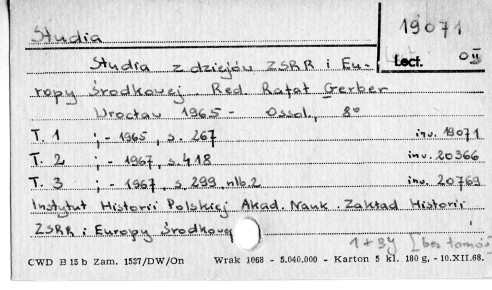 Studia
19071
Lect. 0 II
Studia z dziejów ZSRR i Eu-
ropy Środkowej. Red. Rafał Gerber
Wrocław 1965 - Ossol., 8°
T. 1 ; - 1965, s. 267 inv. 19071
T. 2 ; - 1967, s. 418 inv. 20366
T. 3 ; - 1967, s. 299, nlb. 2 inv. 20769
Instytut Historii Polskiej Akad. Nauk. Zakład Historii
ZSRR i Europy Środkowej
1+3y [bez tomów
CWD B 15 b Zam. 1537/DW/On Wrak 1068 - 5.040.000 - Karton 5 kl. 180 g, - 10.XII.68.